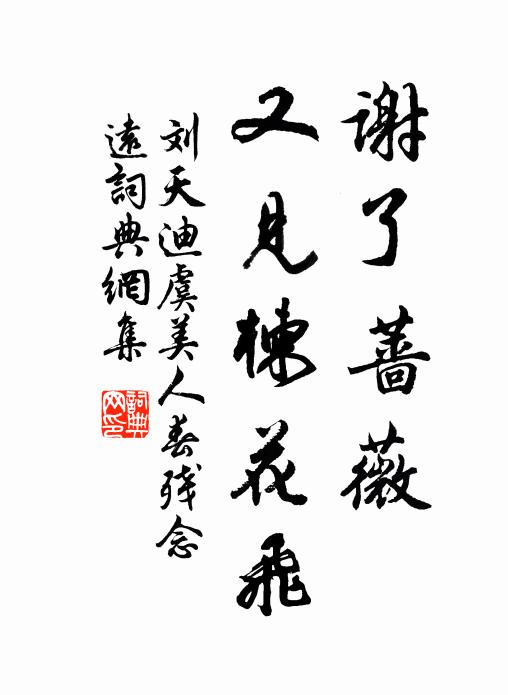 谢了蔷薇
又见楝花飞
刘天迪虞美人春残念
远詞典網集
詞典网印